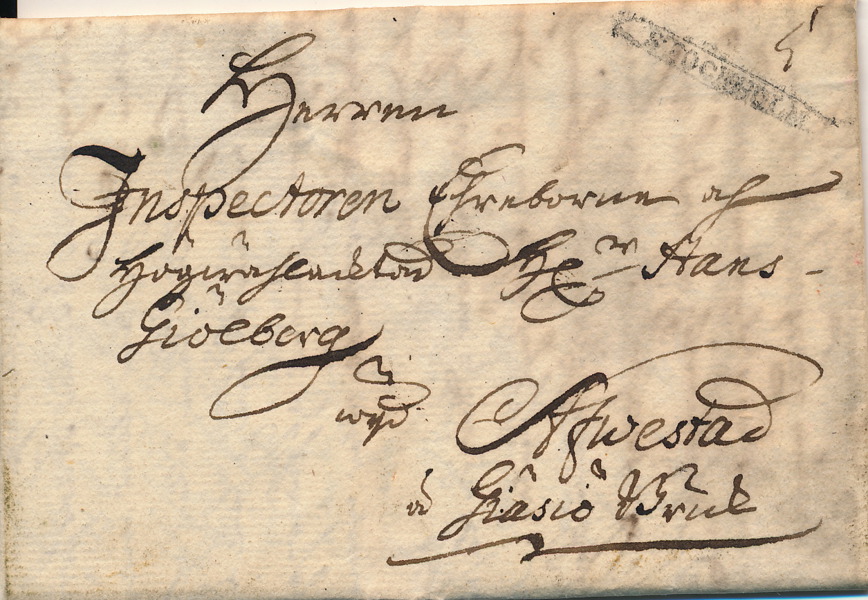 STOCKHOLM
5
Herren
Inspectoren Ehreborne och
Högwählacktad Hr Hans
Giölberg
wyd Afwestad
á Giäsiö Bruk